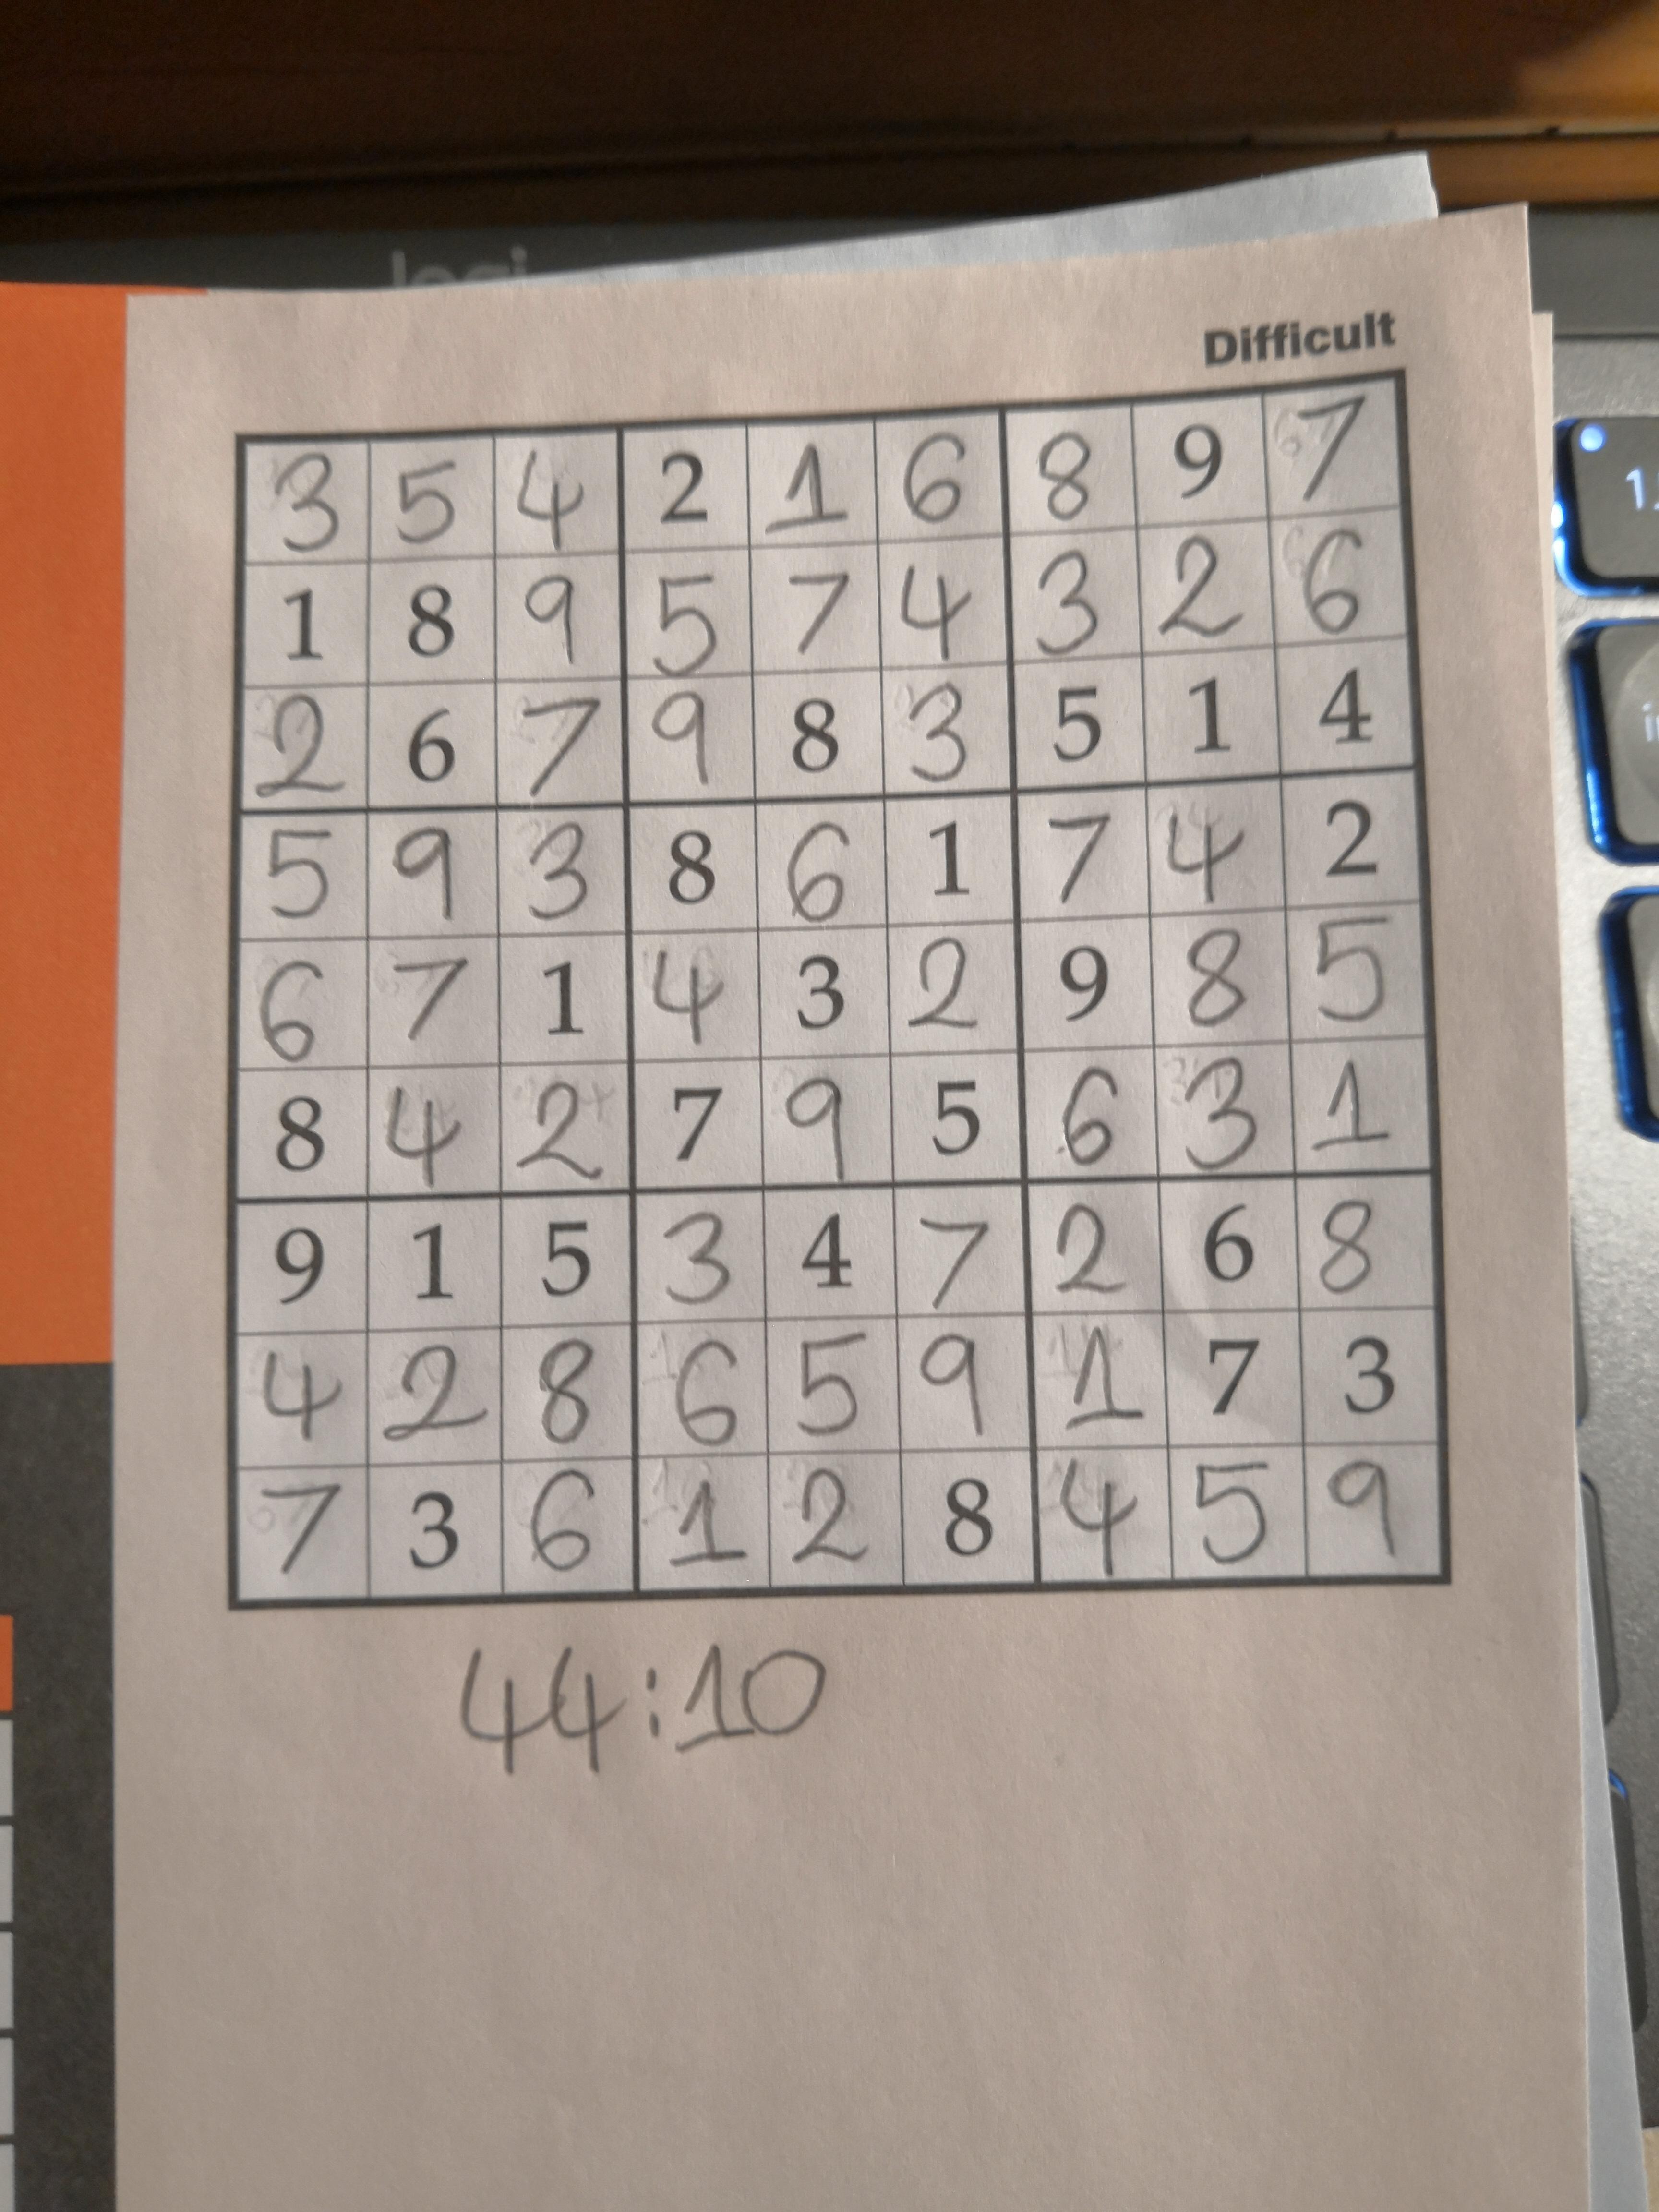 logi
Difficult
3 5 4 2 1 6 8 9 7
1 8 9 5 7 4 3 2 6
2 6 7 9 8 3 5 1 4
5 9 3 8 6 1 7 4 2
6 7 1 4 3 2 9 8 5
8 4 2 7 9 5 6 3 1
9 1 5 3 4 7 2 6 8
4 2 8 6 5 9 1 7 3
7 3 6 1 2 8 4 5 9
44:10